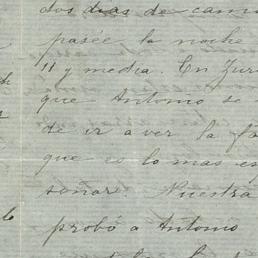 dos dias de cami
pasée la noche
11 y media. En Zur
que Antonio se
de ir a ver la fa
que es lo mas en
soñar. Nuestra
probó a Antonio